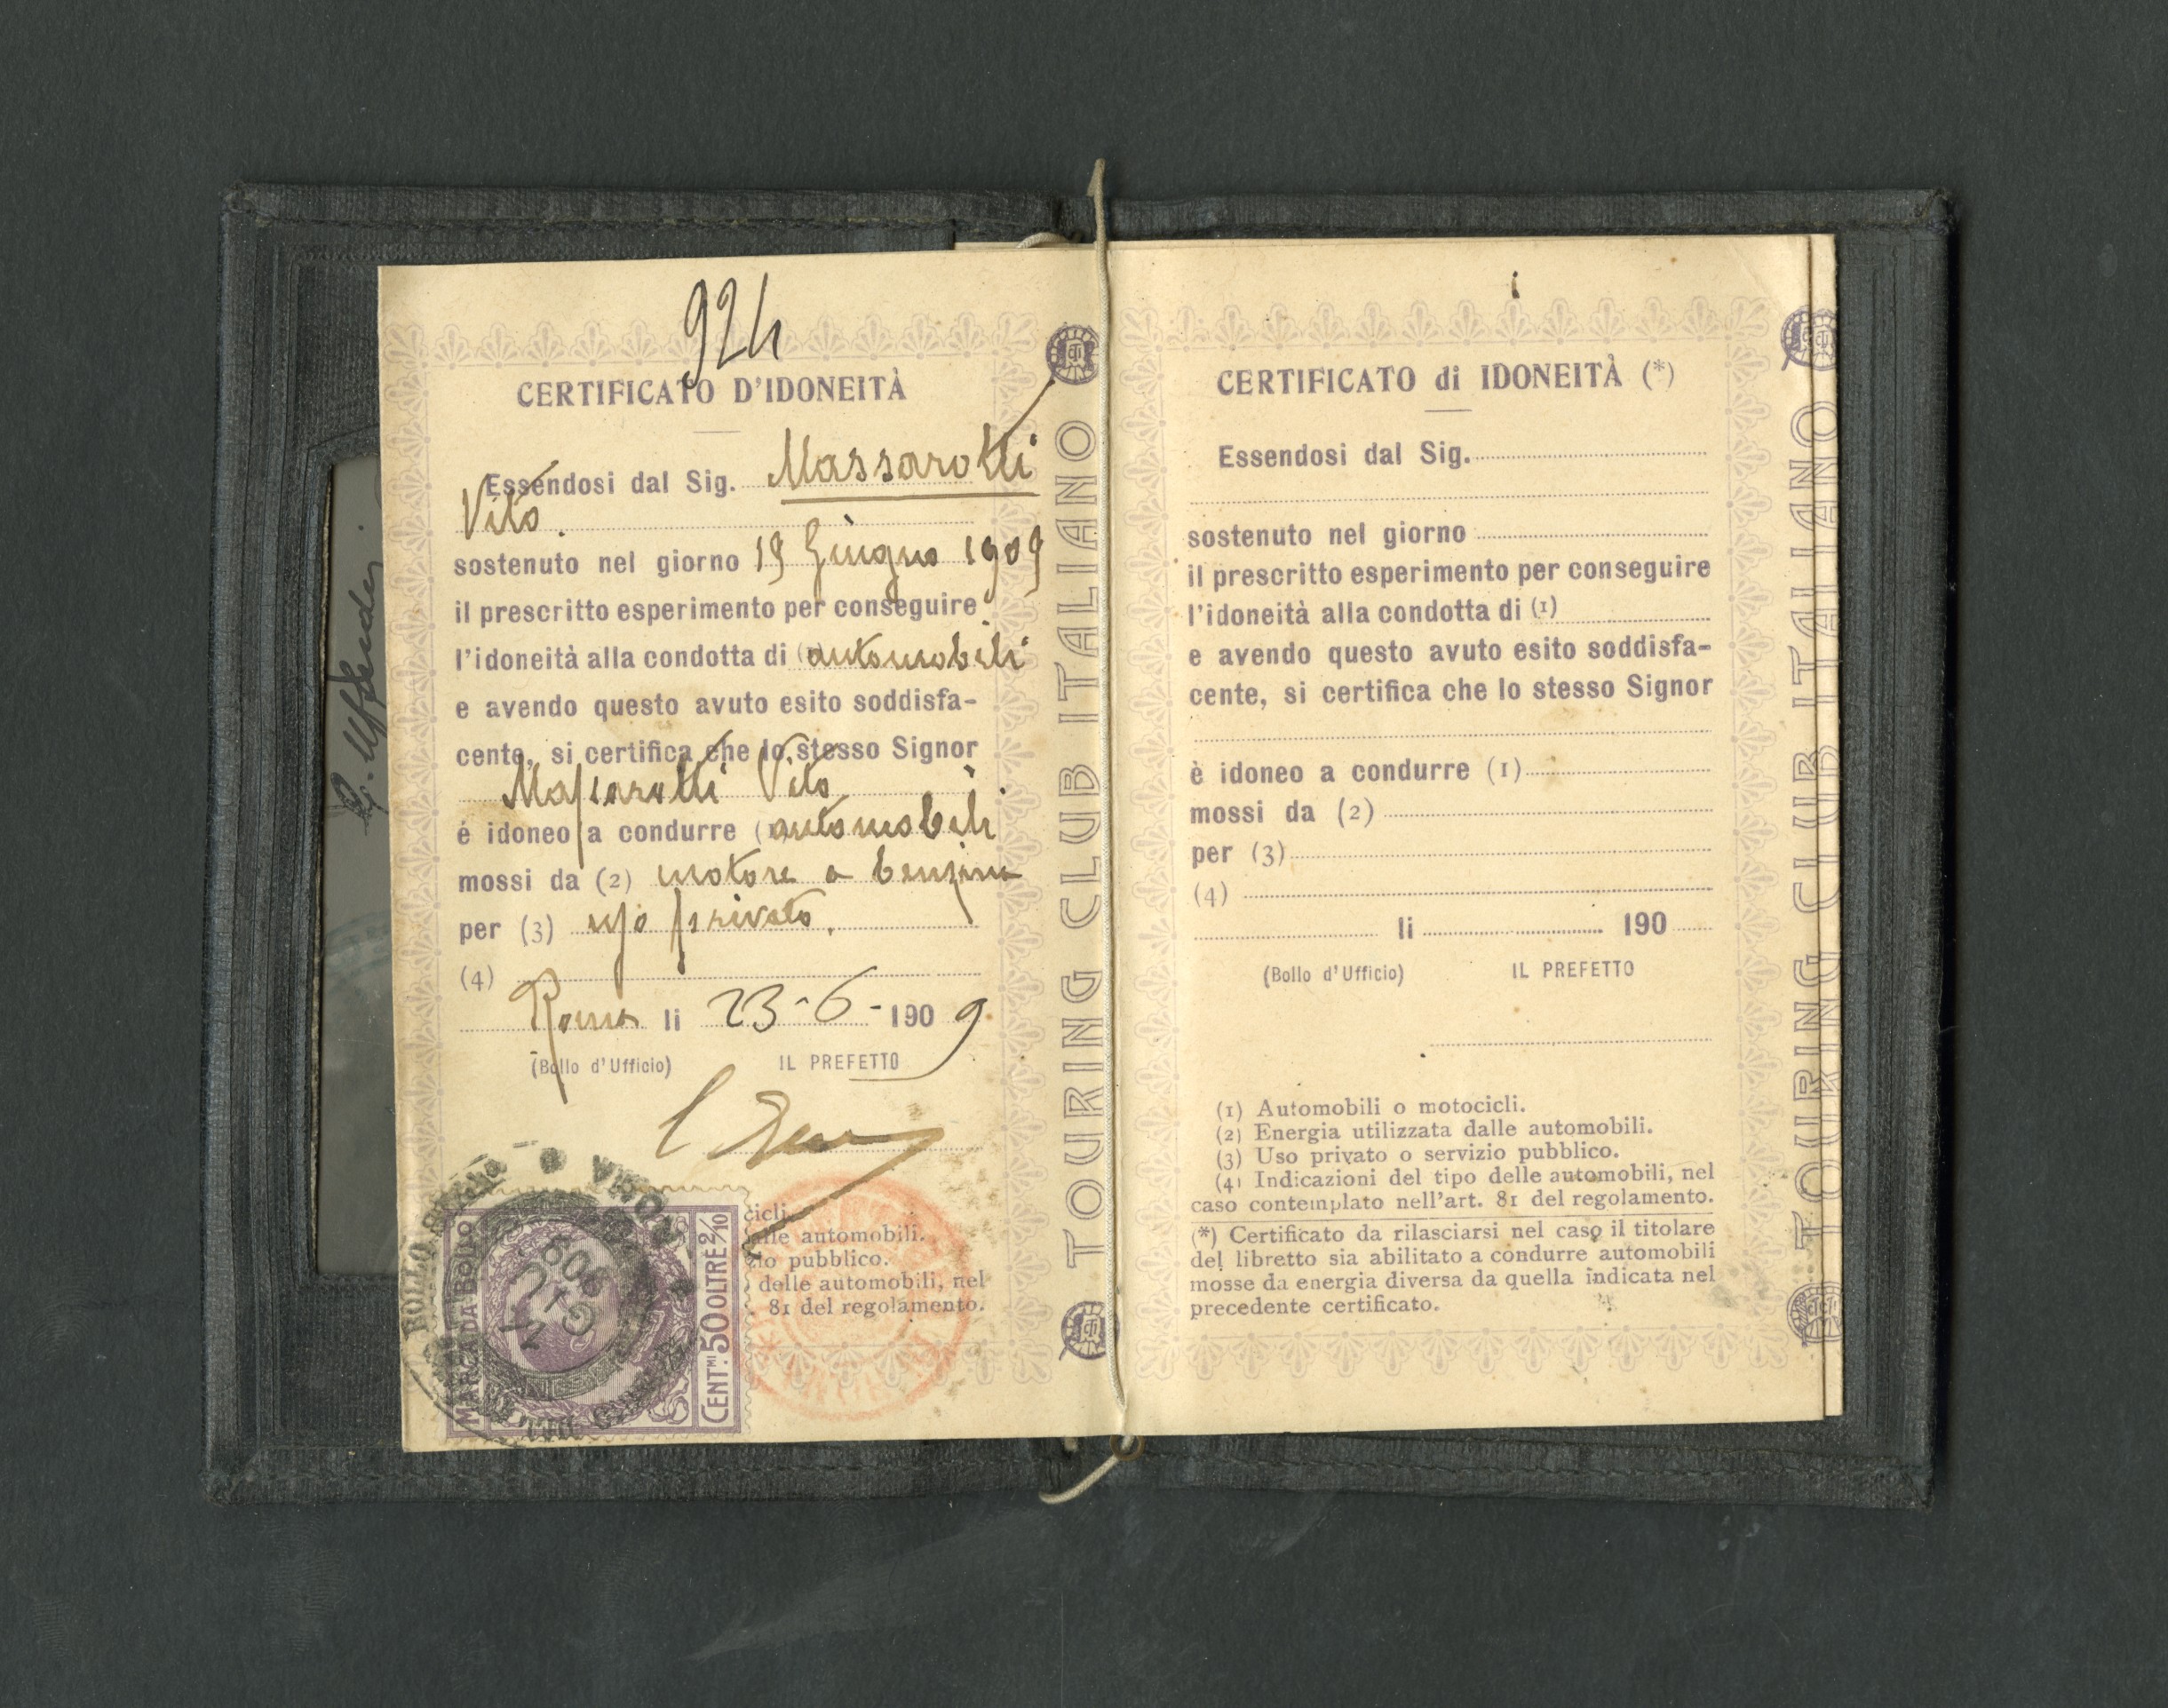 924
CERTIFICATO D'IDONEITÀ
Essendosi dal Sig. Massarotti
Vito.
sostenuto nel giorno 19 Giugno 1909
il prescritto esperimento per conseguire
l'idoneità alla condotta di automobili
e avendo questo avuto esito soddisfa-
cente, si certifica che lo stesso Signor
Massarotti Vito
è idoneo a condurre automobili
mossi da (2) motore a benzina
per (3) uso privato.
(4)
Roma li 23-6-1909
(Bollo d'Ufficio) IL PREFETTO
cicli.
alle automobili.
zio pubblico.
delle automobili, nel
81 del regolamento.
MARCA DA BOLLO
CENT.MI 50 OLTRE 2/10
ROMA
TOURING CLUB ITALIANO
CERTIFICATO di IDONEITÀ (*)
Essendosi dal Sig.
sostenuto nel giorno
il prescritto esperimento per conseguire
l'idoneità alla condotta di (1)
e avendo questo avuto esito soddisfa-
cente, si certifica che lo stesso Signor
è idoneo a condurre (1)
mossi da (2)
per (3)
(4)
li 190
(Bollo d'Ufficio) IL PREFETTO
(1) Automobili o motocicli.
(2) Energia utilizzata dalle automobili.
(3) Uso privato o servizio pubblico.
(4) Indicazioni del tipo delle automobili, nel
caso contemplato nell'art. 81 del regolamento.
(*) Certificato da rilasciarsi nel caso il titolare
del libretto sia abilitato a condurre automobili
mosse da energia diversa da quella indicata nel
precedente certificato.
TOURING CLUB ITALIANO